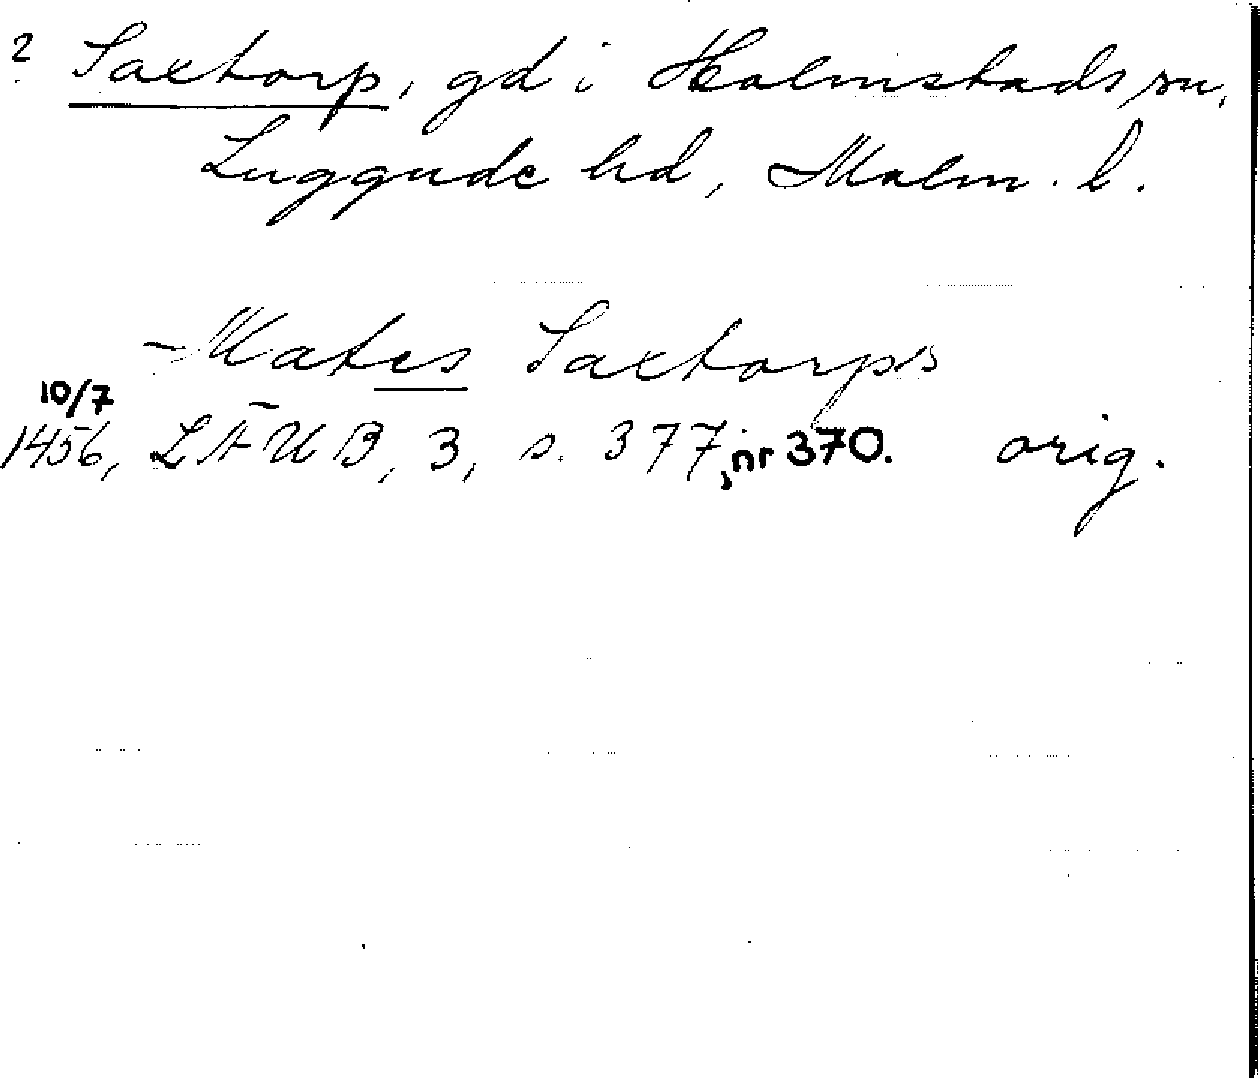 ? Saxtorp, gd i Halmstads sn,
Luggude hd, Malm. l.
Mates Saxtorps
10/7
1456, LÄUB, 3, s. 377, nr 370. orig.